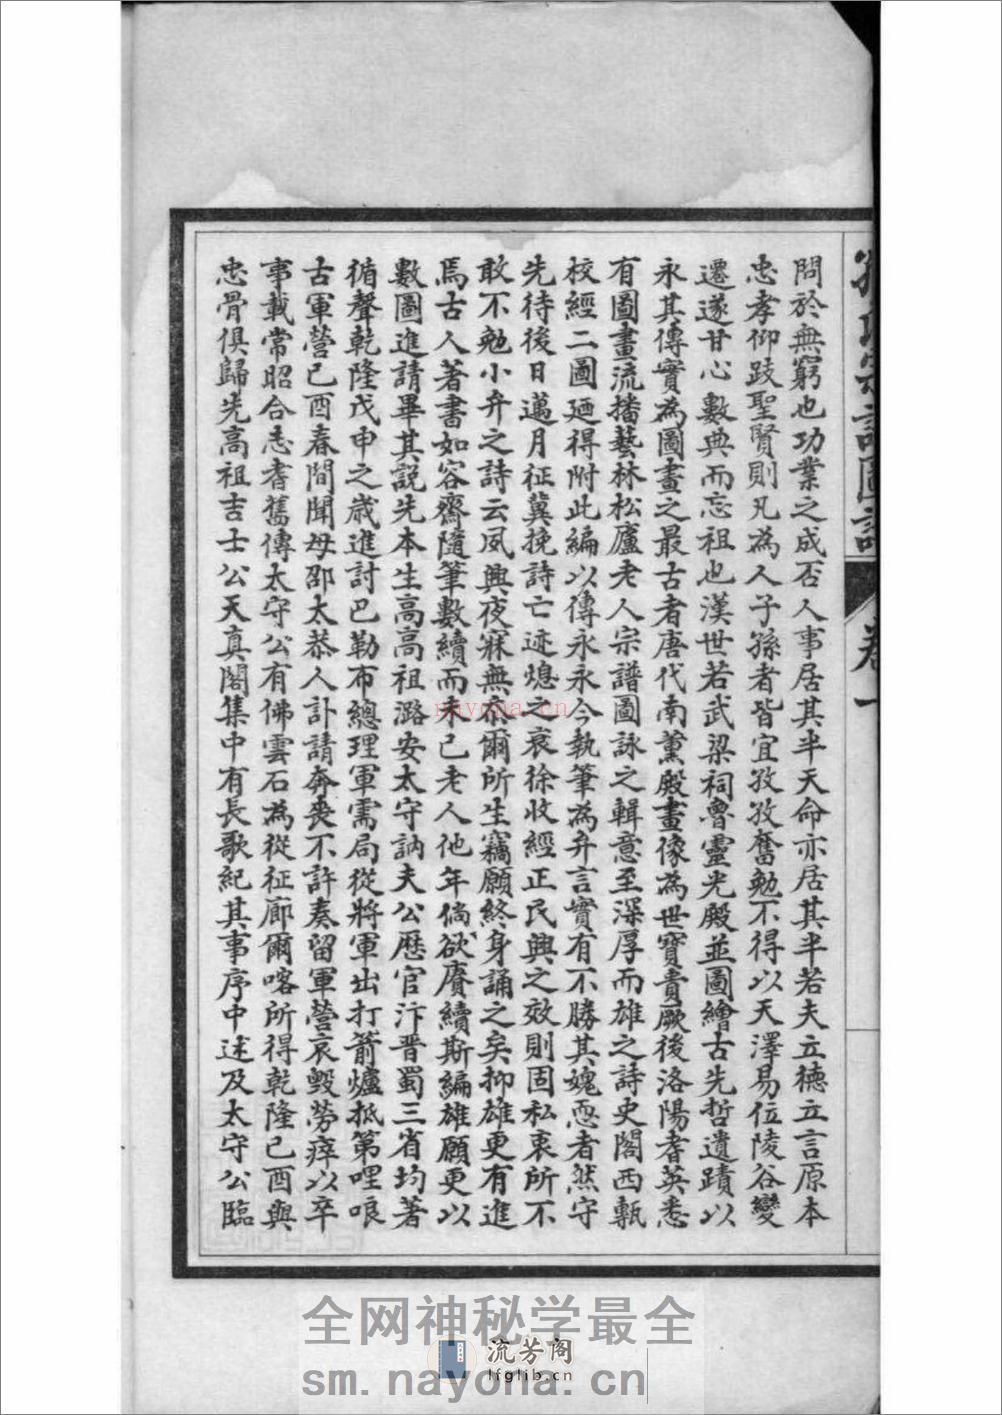 孫氏宗譜圖記
卷一
問於無窮也功業之成否人事居其半天命亦居其半若夫立德立言原本
忠孝仰跂聖賢則凡為人子孫者皆宜孜孜奮勉不得以天澤易位陵谷變
遷遂甘心數典而忘祖也漢世若武梁祠魯靈光殿並圖繪古先哲遺蹟以
永其傳實為圖畫之最古者唐代南薰殿畫像為世寶貴厥後洛陽耆英悉
有圖畫流播藝林松廬老人宗譜圖詠之輯意至深厚而雄之詩史閣西甎
校經二圖廼得附此編以傳永永今執筆為弁言實有不勝其媿恧者然守
先待後日邁月征冀挽詩亡迹熄之哀徐收經正民興之效則固私衷所不
敢不勉小弁之詩云夙興夜寐無忝爾所生竊願終身誦之矣抑雄更有進
焉古人著書如容齋隨筆數續而未已老人他年倘欲賡續斯編雄願更以
數圖進請畢其說先本生高高祖潞安太守訥夫公歷官汴晉蜀三省均著
循聲乾隆戊申之歲進討巴勒布總理軍需局從將軍出打箭爐抵第哩哴
古軍營己酉春間聞母邵太恭人訃請奔喪不許奏留軍營哀毀勞瘁以卒
事載常昭合志耆舊傳太守公有佛雲石為從征廓爾喀所得乾隆己酉與
忠骨俱歸先高祖吉士公天真閣集中有長歌紀其事序中述及太守公臨
nayona.cn
全网神秘学最全
流芳阁
lfglib.cn
sm.nayona.cn